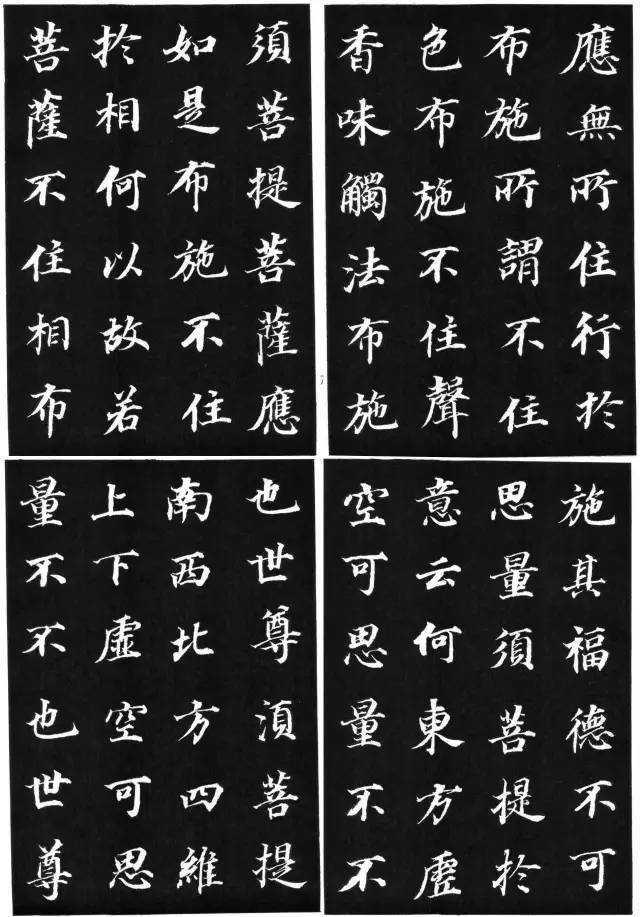 應無所住行於
布施所謂不住
色布施不住聲
香味觸法布施
須菩提菩薩應
如是布施不住
於相何以故若
菩薩不住相布
施其福德不可
思量須菩提於
意云何東方虛
空可思量不不
也世尊須菩提
南西北方四維
上下虛空可思
量不不也世尊